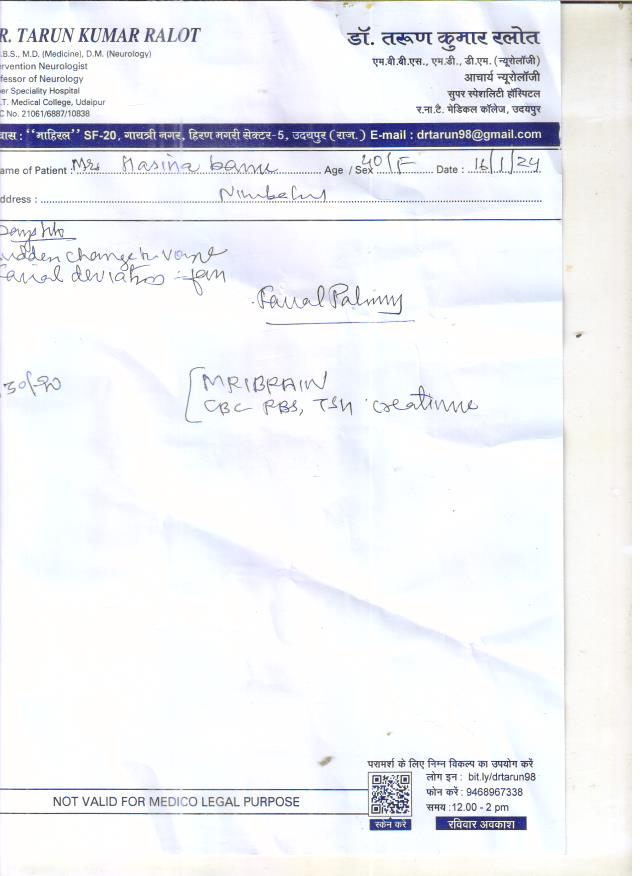 R. TARUN KUMAR RALOT
.B.S., M.D. (Medicine), D.M. (Neurology)
rvention Neurologist
fessor of Neurology
er Speciality Hospital
.T. Medical College, Udaipur
C No. 21061/6887/10838
डॉ. तरूण कुमार रलोत
एम.बी.बी.एस., एम.डी., डी.एम. (न्यूरोलॉजी)
आचार्य न्यूरोलॉजी
सुपर स्पेशलिटी हॉस्पिटल
र.ना.टै. मेडिकल कॉलेज, उदयपुर
वास : "माहिरल" SF-20, गायत्री नगर, हिरण मगरी सेक्टर-5, उदयपुर (राज.) E-mail : drtarun98@gmail.com
ame of Patient : Mrs Hasina banu Age / Sex 40/F Date : 16/1/24
ddress :
Days h/o
udden change in voice
facial deviation
Facial Palsy
MRI BRAIN
CBC RBS, TSH creatinine
परामर्श के लिए निम्न विकल्प का उपयोग करें
लोग इन : bit.ly/drtarun98
फोन करें : 9468967338
समय :12.00 - 2 pm
स्केन करें
रविवार अवकाश
NOT VALID FOR MEDICO LEGAL PURPOSE